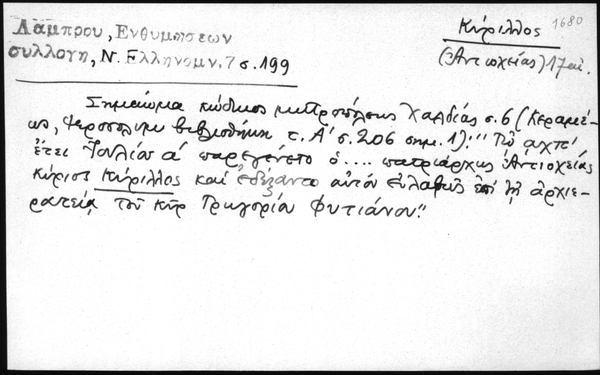 Λάμπρου, Ενθυμήσεων
συλλογή, Ν. Ελληνομν. 7 σ. 199
Κύριλλος 1680
(Ἀντιοχείας) 17 αἰ.
Σημείωμα κώδικος μητροπόλεως Χαλδίας σ. 6 (Κεραμέ-
ως, Ἱεροσολυμ. βιβλιοθήκη τ. Α' σ. 206 σημ. 1): "Τῷ αχπ'
ἔτει Ἰουλίου α' παρεγένετο ὁ .... πατριάρχης Ἀντιοχείας
κύριος Κύριλλος καὶ ἐδέξαντο αὐτὸν εὐλαβῶς ἐπὶ τῇ ἀρχιε-
ρατείᾳ τοῦ κὺρ Γρηγορίου Φυτιάνου".